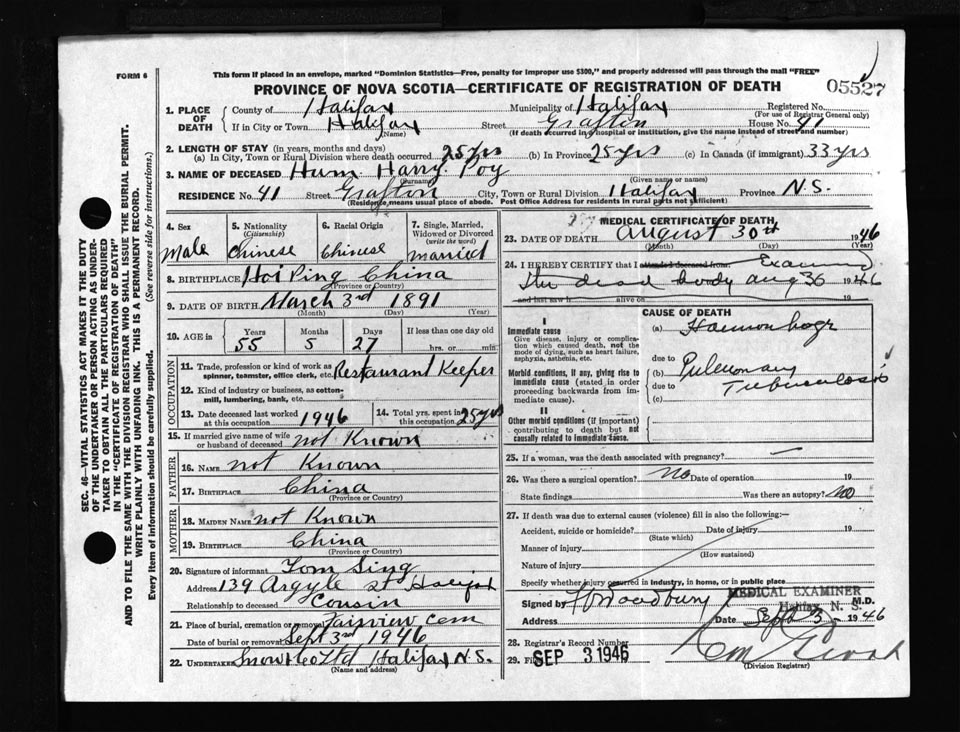 FORM 6
This form if placed in an envelope, marked "Dominion Statistics—Free, penalty for improper use $300," and properly addressed will pass through the mail "FREE"
05527
PROVINCE OF NOVA SCOTIA—CERTIFICATE OF REGISTRATION OF DEATH
1. PLACE OF DEATH
County of Halifax Municipality of Halifax Registered No.
(For use of Registrar General only)
If in City or Town Halifax Street Grafton House No. 41
(Name) (If death occurred in hospital or institution, give the name instead of street and number)
2. LENGTH OF STAY (in years, months and days)
(a) In City, Town or Rural Division where death occurred 25 yrs (b) In Province 25 yrs (c) In Canada (if immigrant) 33 yrs
3. NAME OF DECEASED Hum Harry Poy
(Surname) (Given name or names)
RESIDENCE No. 41 Street Grafton City, Town or Rural Division Halifax Province N.S.
(Residence means usual place of abode. Post Office Address for residents in rural parts not sufficient)
SEC. 46—VITAL STATISTICS ACT MAKES IT THE DUTY
OF THE UNDERTAKER OR PERSON ACTING AS UNDER-
TAKER TO OBTAIN ALL THE PARTICULARS REQUIRED
IN THE "CERTIFICATE OF REGISTRATION OF DEATH"
AND TO FILE THE SAME WITH THE DIVISION REGISTRAR WHO SHALL ISSUE THE BURIAL PERMIT.
WRITE PLAINLY WITH UNFADING INK. THIS IS A PERMANENT RECORD.
Every item of information should be carefully supplied. (See reverse side for instructions.)
4. Sex 5. Nationality (Citizenship) 6. Racial Origin 7. Single, Married, Widowed or Divorced (write the word)
Male Chinese Chinese married
8. BIRTHPLACE Hoi Ping China
(Province or Country)
9. DATE OF BIRTH March 3rd 1891
(Month) (Day) (Year)
10. AGE in Years Months Days If less than one day old
55 5 27 hrs. or min.
OCCUPATION
11. Trade, profession or kind of work as spinner, teamster, office clerk, etc. Restaurant Keeper
12. Kind of industry or business, as cotton-mill, lumbering, bank, etc.
13. Date deceased last worked at this occupation 1946 14. Total yrs. spent in this occupation 25 yrs
15. If married give name of wife or husband of deceased not Known
FATHER
16. NAME not Known
17. BIRTHPLACE China
(Province or Country)
MOTHER
18. MAIDEN NAME not Known
19. BIRTHPLACE China
(Province or Country)
20. Signature of informant Tom Sing
Address 139 Argyle st Halifax
Relationship to deceased Cousin
21. Place of burial, cremation or removal Fairview Cem
Date of burial or removal Sept 3rd 1946
22. UNDERTAKER Snow & Co Ltd Halifax N.S.
(Name and address)
MEDICAL CERTIFICATE OF DEATH
23. DATE OF DEATH August 30th 1946
(Month) (Day) (Year)
24. I HEREBY CERTIFY that I attended deceased from Examined
the dead body aug 30 1946
and last saw h alive on 19
CAUSE OF DEATH
I
Immediate cause
Give disease, injury or complication which caused death, not the mode of dying, such as heart failure, asphyxia, asthenia, etc.
Morbid conditions, if any, giving rise to immediate cause (stated in order proceeding backwards from immediate cause).
II
Other morbid conditions (if important) contributing to death but not causally related to immediate cause.
(a) Haemorrhage
due to
(b) Pulmonary
due to Tuberculosis
(c)
25. If a woman, was the death associated with pregnancy? —
26. Was there a surgical operation? No Date of operation 19
State findings Was there an autopsy? No
27. If death was due to external causes (violence) fill in also the following:—
Accident, suicide or homicide? Date of injury 19
(State which)
Manner of injury
(How sustained)
Nature of injury
Specify whether injury occurred in industry, in home, or in public place
MEDICAL EXAMINER
Halifax N. S.
Signed by Woodbury M.D.
Address Date Sept 3 1946
28. Registrar's Record Number
29. SEP 3 1946
(Division Registrar)